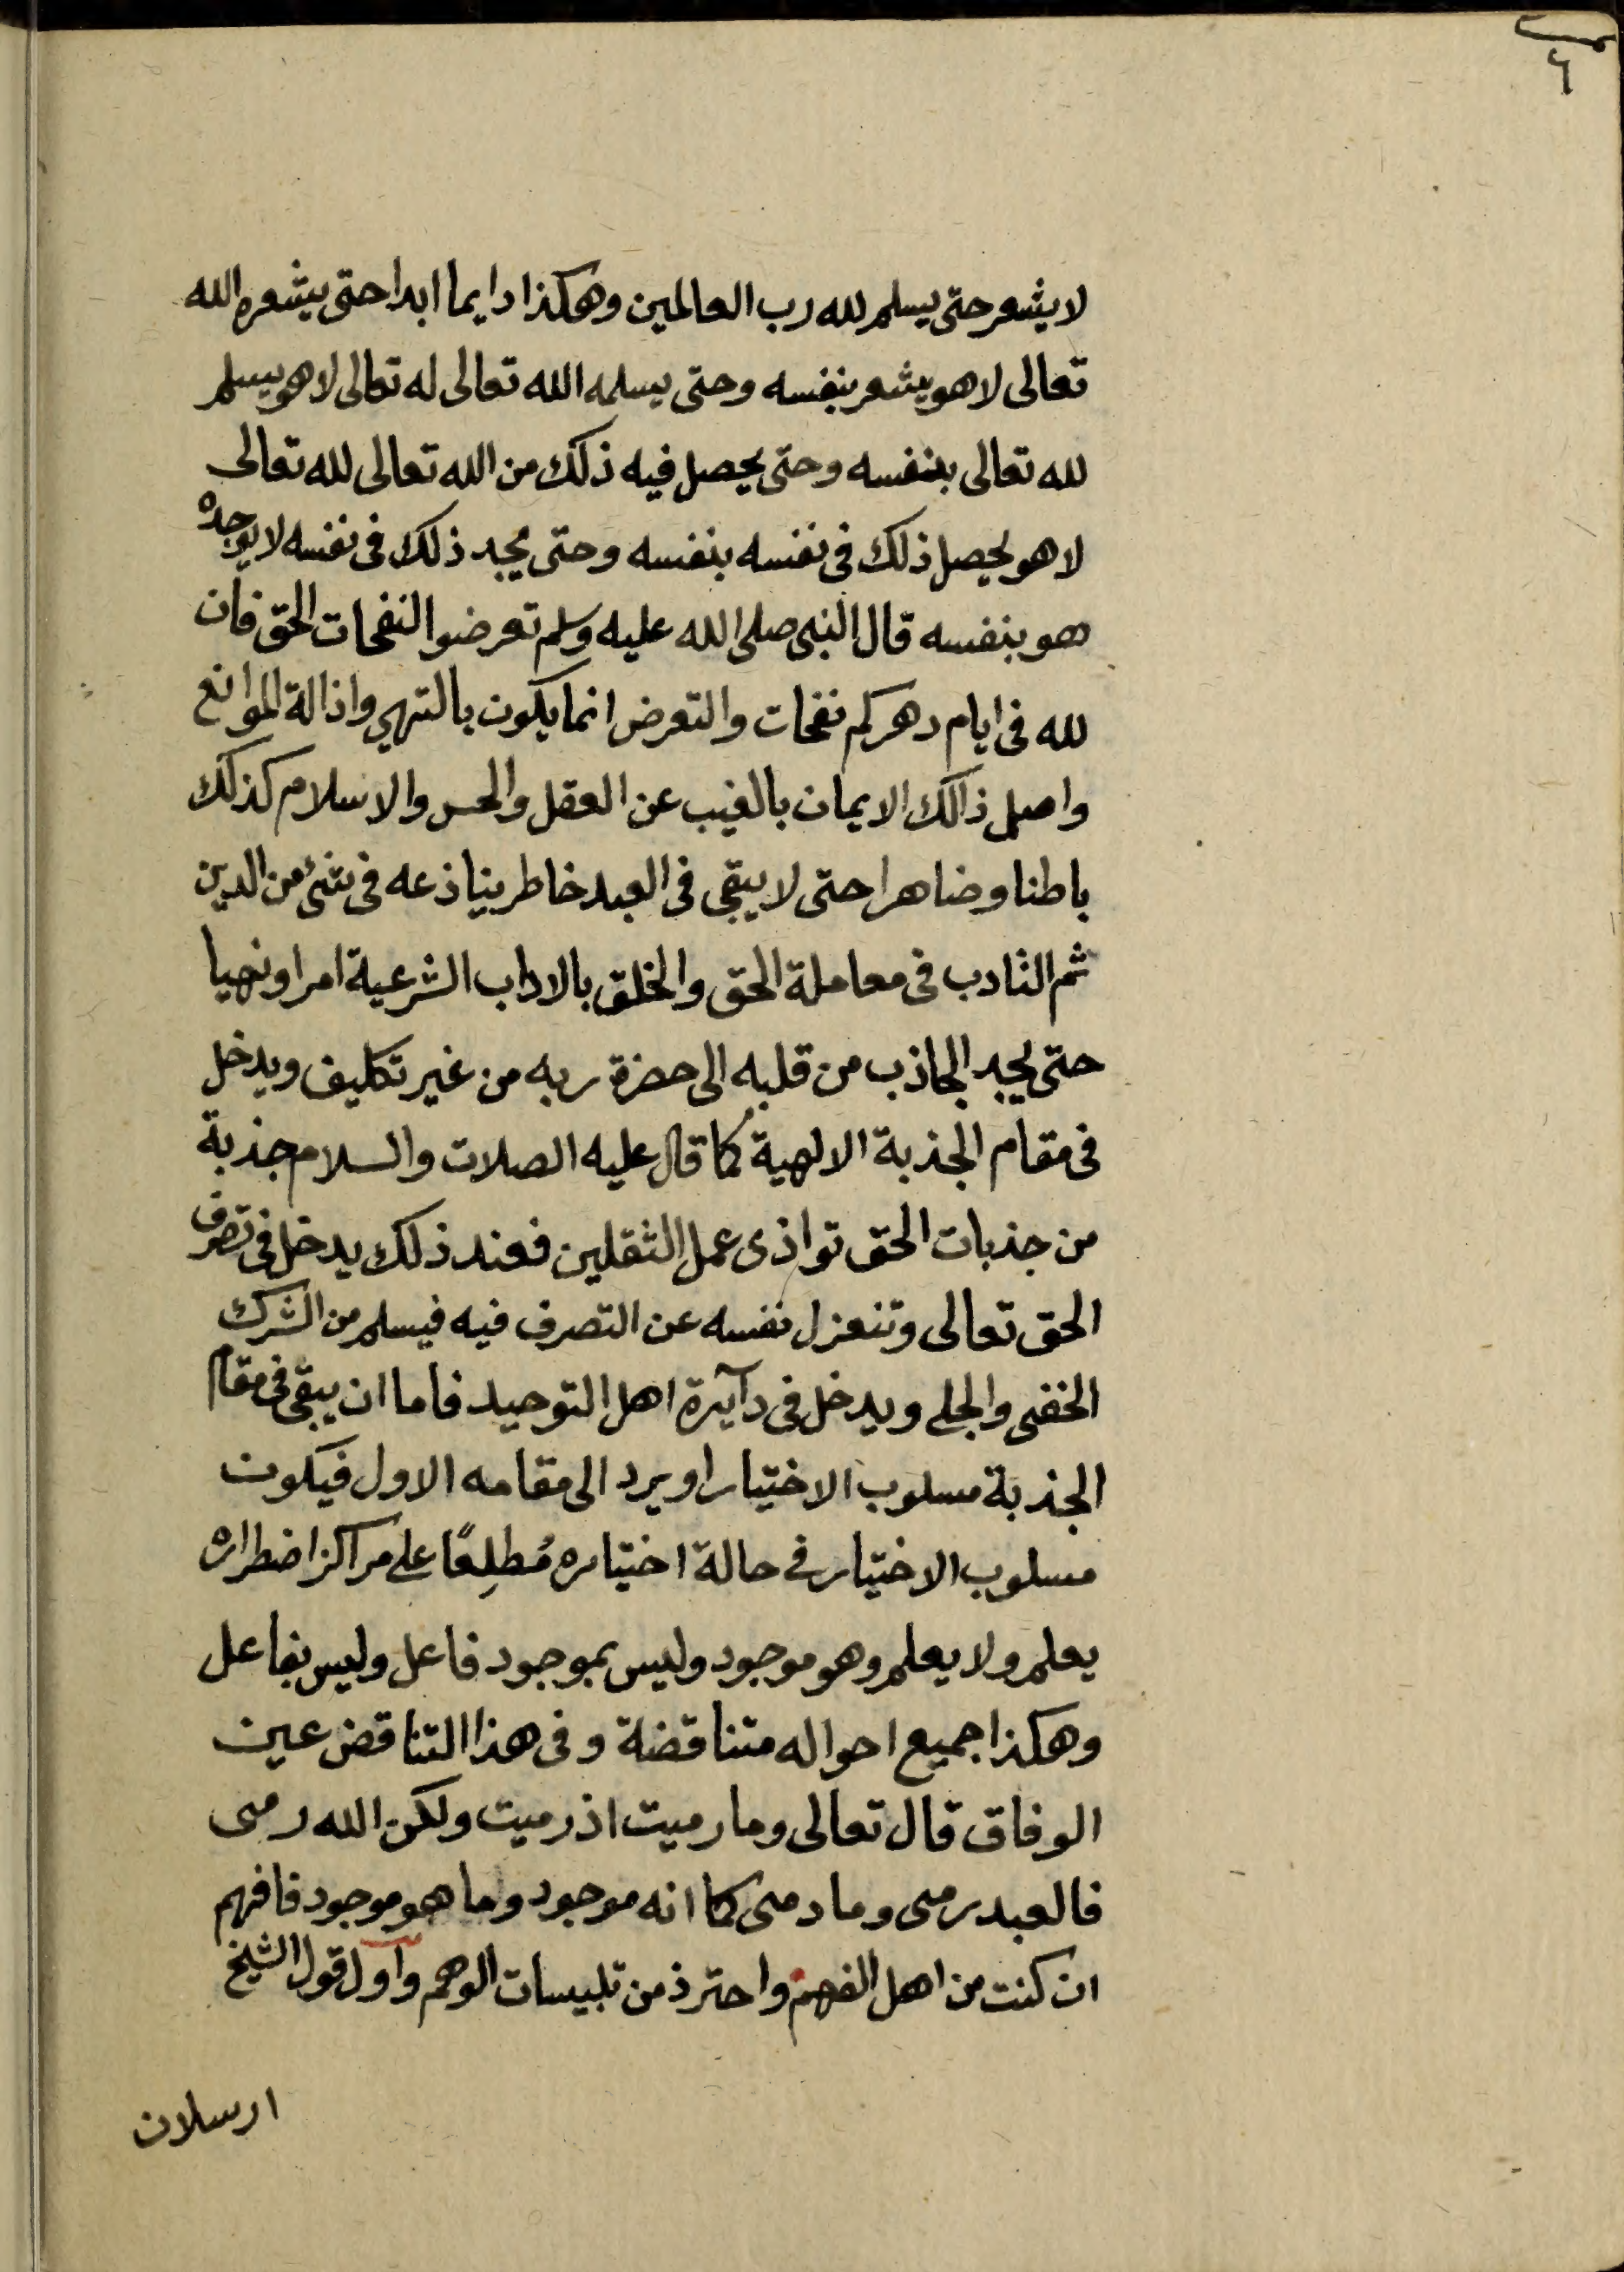 ٦
لا يشعر حتى يسلم لله رب العالمين وهكذا دايما ابدا حتى يشعره الله
تعالى لا هو يشعر بنفسه وحتى يسلمه الله تعالى له تعالى لا هو يسلم
لله تعالى بنفسه وحتى يحصل فيه ذلك من الله تعالى لله تعالى
لا هو يحصل ذلك فى نفسه بنفسه وحتى يجد ذلك فى نفسه لا يوجده
هو بنفسه قال النبى صلى الله عليه وسلم تعرضوا النفحات الحق فان
لله فى ايام دهركم نفحات والتعرض انما يكون بالتهي واذالة الموانع
واصل ذالك الايمان بالغيب عن العقل والحس والاسلام كذلك
باطنا وضاهرا حتى لا يبقى فى العبد خاطر يناذعه فى شئ من الدين
ثم التادب فى معاملة الحق والخلق بالاداب الشرعية امرا ونهيا
حتى يجد الجاذب من قلبه الى حضرة ربه من غير تكليف ويدخل
فى مقام الجذبة الالهية كما قال عليه الصلات والسلام جذبة
من جذبات الحق تواذى عمل الثقلين فعند ذلك يدخل فى تصرف
الحق تعالى وتنعزل نفسه عن التصرف فيه فيسلم من الشرك
الخفى والجلى ويدخل فى دآيرة اهل التوحيد فاما ان يبقى فى مقام
الجذبة مسلوب الاختيار او يرد الى مقامه الاول فيكون
مسلوب الاختيار فى حالة اختياره مُطلِعًا على مراكز اضطراره
يعلم ولا يعلم وهو موجود وليس بموجود فاعل وليس بفاعل
وهكذا جميع احواله متناقضة وفى هذا التناقض عين
الوفاق قال تعالى وما رميت اذ رميت ولكن الله رمى
فالعبد رمى وما رمى كما انه موجود وما هو موجود فافهم
ان كنت من اهل الفهم واحترذ من تلبيسات الوهم وآول قول الشيخ
ارسلان